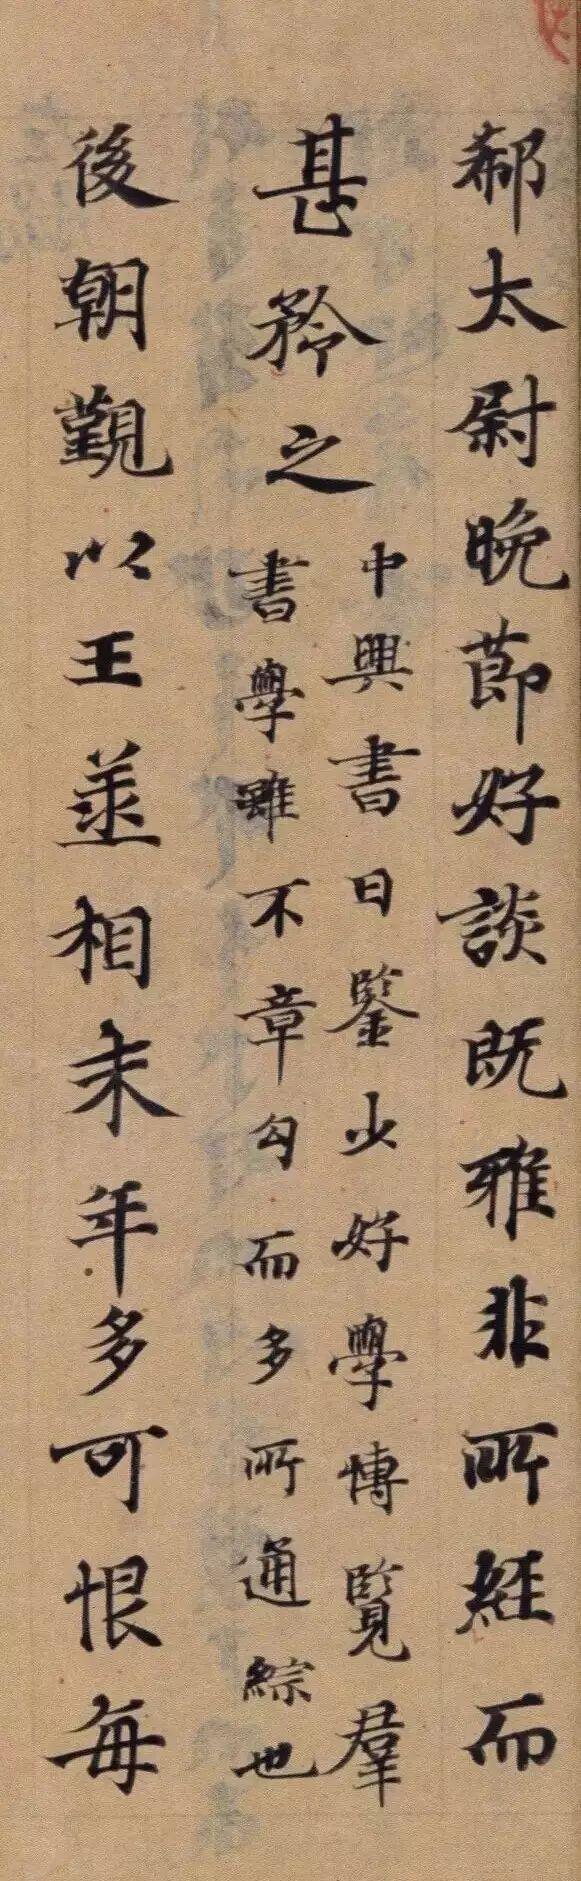 郗太尉晚莭好談既雅非所經而
甚矜之
中興書曰鑒少好學博覽羣
書學雖不章句而多所通綜也
後朝覲以王丞相末年多可恨每